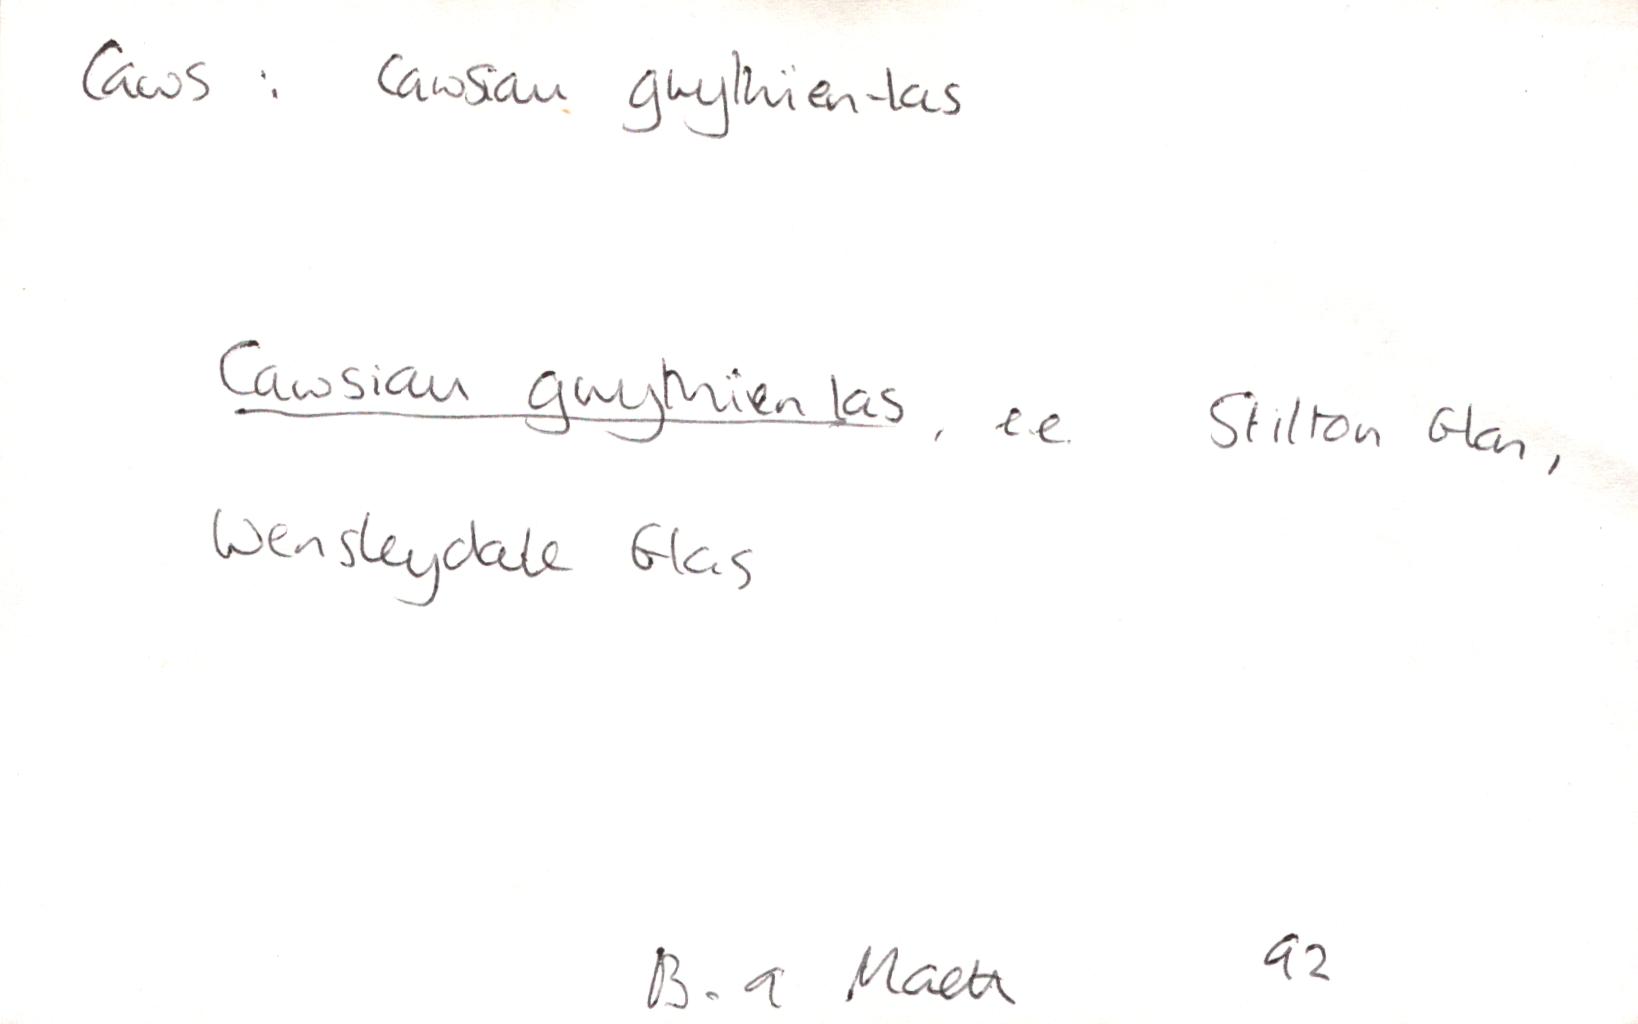 Caws : Cawsiau gwythïen-las
Cawsiau gwythïen las, e.e. Stilton Glas,
Wensleydale Glas
B. a Maeth 92